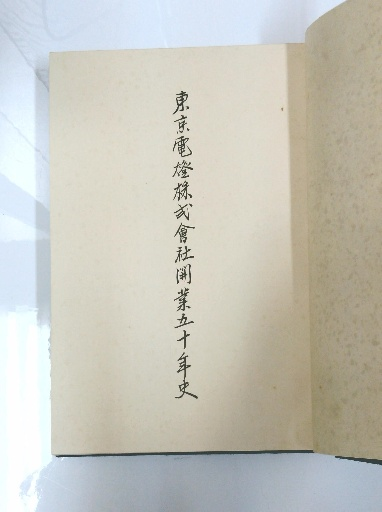 東京電燈株式會社開業五十年史